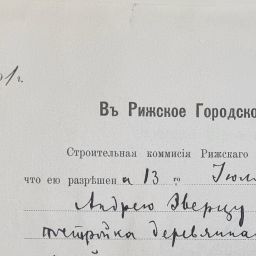 г.
Въ Рижское Городско
Строительная коммисія Рижскаго
что ею разрѣшена 13 го Іюл
Андрею Зверцу
постройка деревянна